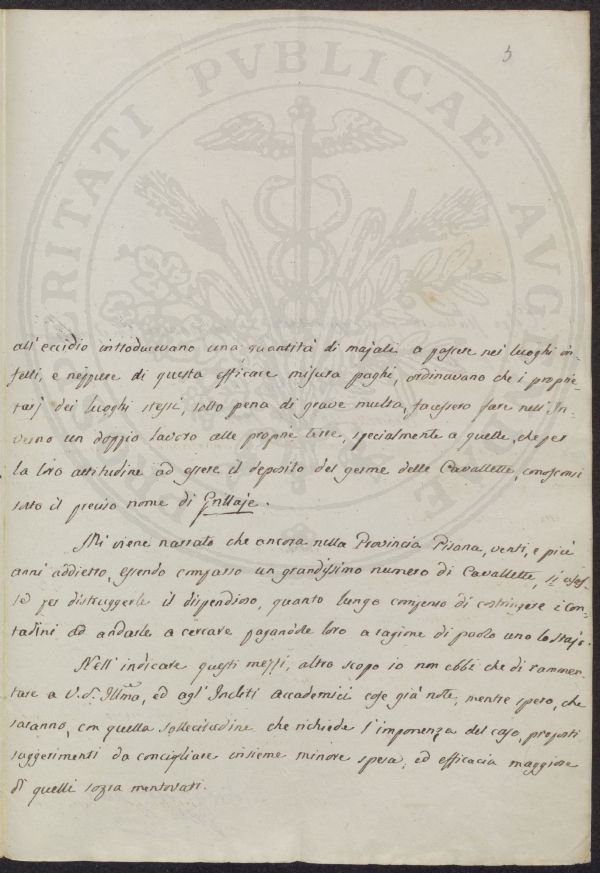 3
PROSPERITATI PVBLICAE AVGENDAE
all' eccidio introducevano una quantità di majali a pascere nei luoghi in=
fetti, e neppure di questa efficace misura paghi, ordinavano che i proprie=
tarj dei luoghi stessi, sotto pena di grave multa, facessero fare nell' In=
verno un doppio lavoro alle proprie terre, specialmente a quelle, che per
la loro attitudine ad essere il deposito del germe delle Cavallette, conosconsi
sotto il preciso nome di Grillaje.
Mi viene narrato che ancora nella Provincia Pisana, venti, e più
anni addietro, essendo comparso un grandissimo numero di Cavallette, si
se per distruggerle il dispendioso, quanto lungo compenso di costringere i Con=
tadini ad andarle a cercare pagandole loro a ragione di paolo uno lo stajo.
Nell' indicare questi mezzi, altro scopo io non ebbi che di rammen=
tare a V.S. Illma, ed agl' Incliti accademici cose già note, mentre spero, che
saranno, con quella sollecitudine che richiede l' imponenza del caso, proposti
suggerimenti da concigliare insieme minore spesa, ed efficacia maggiore
di quelli sopra mentovati.